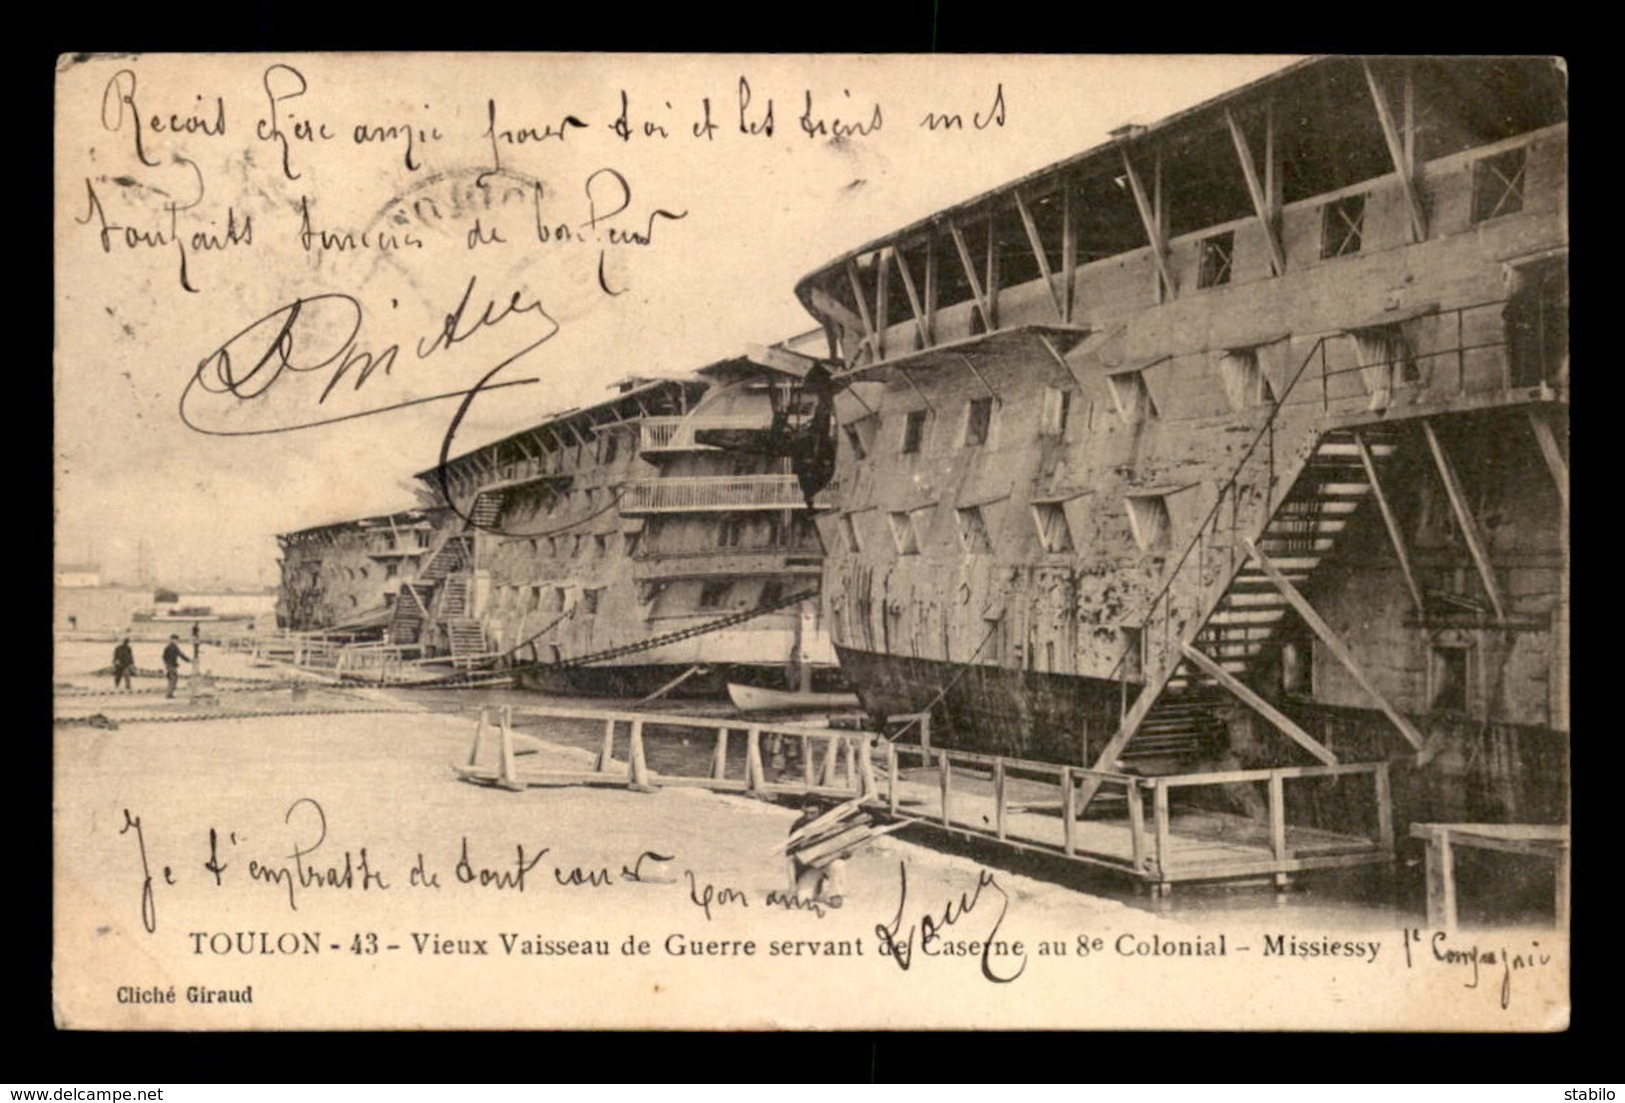 Reçois chère amie pour toi et les tiens mes
souhaits sincères de bonheur
TOULON
Je t'embrasse de tout cœur ton ami
Louis
TOULON - 43 - Vieux Vaisseau de Guerre servant de Caserne au 8e Colonial - Missiessy 1e Compagnie
Cliché Giraud
www.delcampe.net
stabilo